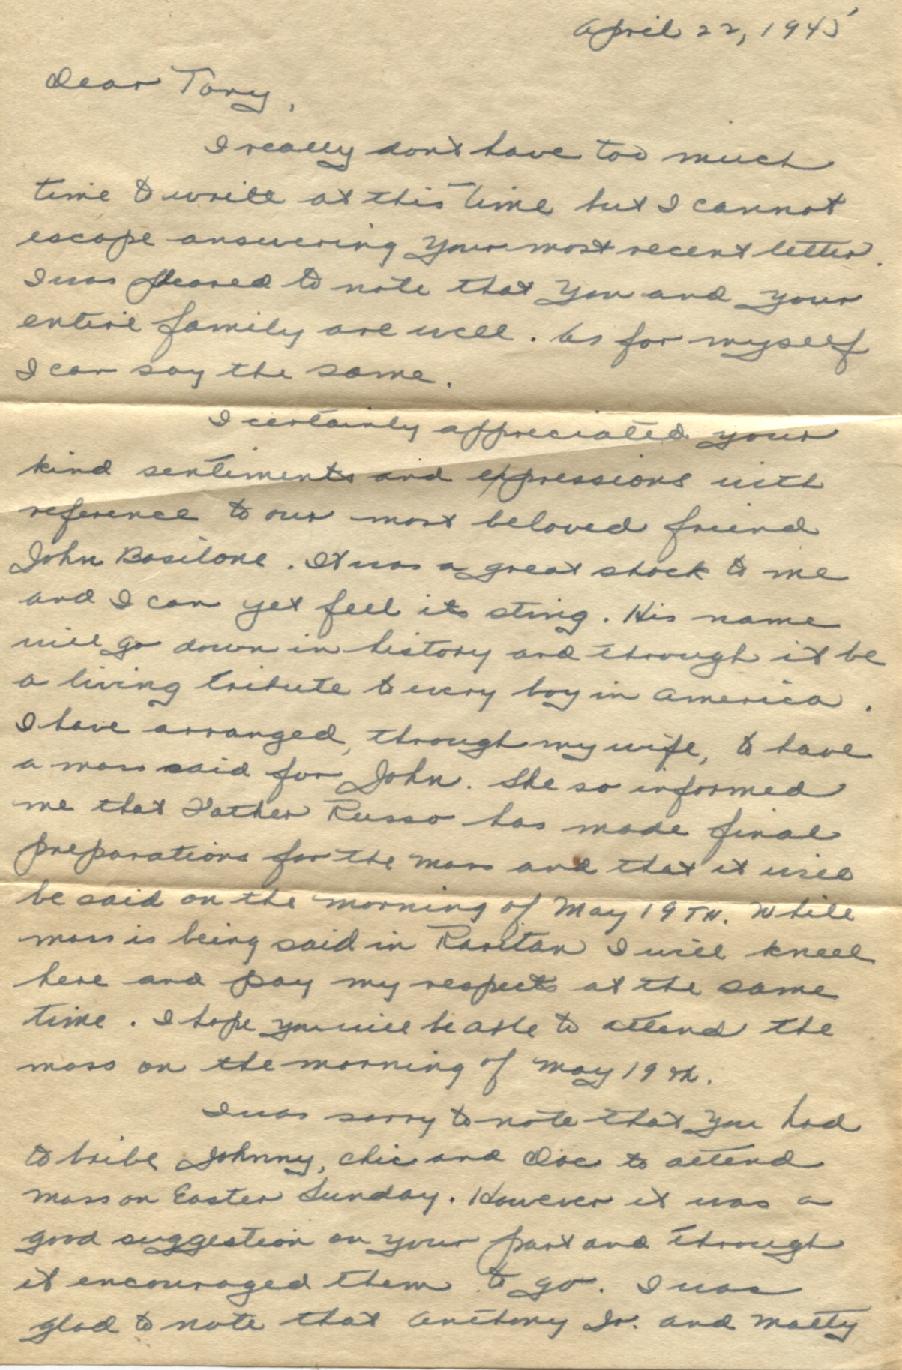 April 22, 1945
Dear Tony,
I really don't have too much
time to write at this time but I cannot
escape answering your most recent letter.
I was pleased to note that you and your
entire family are well. As for myself
I can say the same.
I certainly appreciated your
kind sentiments and expressions with
reference to our most beloved friend
John Basilone. It was a great shock to me
and I can yet feel its sting. His name
will go down in history and through it be
a living tribute to every boy in America.
I have arranged, through my wife, to have
a mass said for John. She so informed
me that Father Russo has made final
preparations for the mass and that it will
be said on the morning of May 19TH. While
mass is being said in Raritan I will kneel
here and pay my respects at the same
time. I hope you will be able to attend the
mass on the morning of May 19th.
I was sorry to note that you had
to bribe Johnny, Chic and Doc to attend
mass on Easter Sunday. However it was a
good suggestion on your part and through
it encouraged them to go. I was
glad to note that Anthony Jr. and Matty